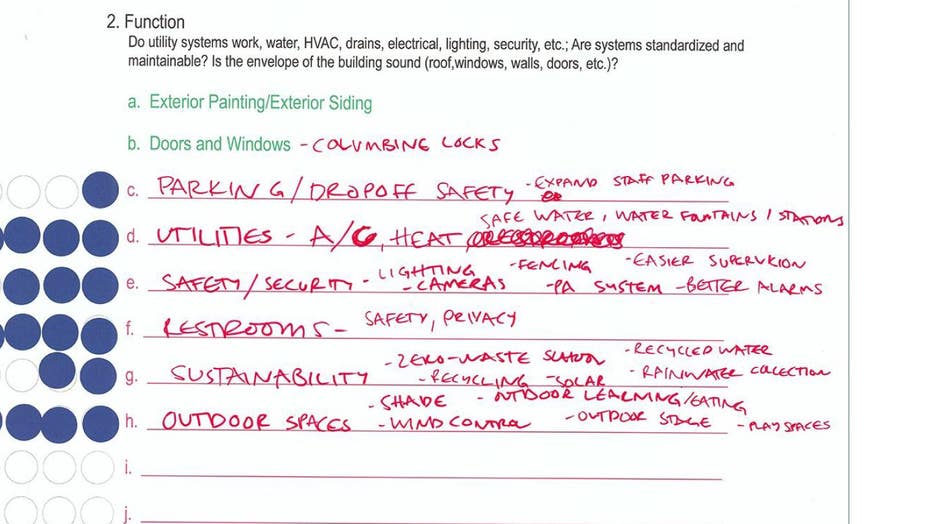 2. Function
Do utility systems work, water, HVAC, drains, electrical, lighting, security, etc.; Are systems standardized and
maintainable? Is the envelope of the building sound (roof,windows, walls, doors, etc.)?
a. Exterior Painting/Exterior Siding
b. Doors and Windows - COLUMBINE LOCKS
c. PARKING/DROPOFF SAFETY - EXPAND STAFF PARKING
SAFE WATER, WATER FOUNTAINS / STATIONS
d. UTILITIES - A/C, HEAT,
- LIGHTING - FENCING - EASIER SUPERVISION
e. SAFETY/SECURITY - CAMERAS - PA SYSTEM - BETTER ALARMS
f. RESTROOMS - SAFETY, PRIVACY
- ZERO-WASTE SCHOOL - RECYCLED WATER
g. SUSTAINABILITY - RECYCLING - SOLAR - RAINWATER COLLECTION
- SHADE - OUTDOOR LEARNING/EATING
h. OUTDOOR SPACES - WIND CONTROL - OUTDOOR STAGE - PLAY SPACES
i.
j.